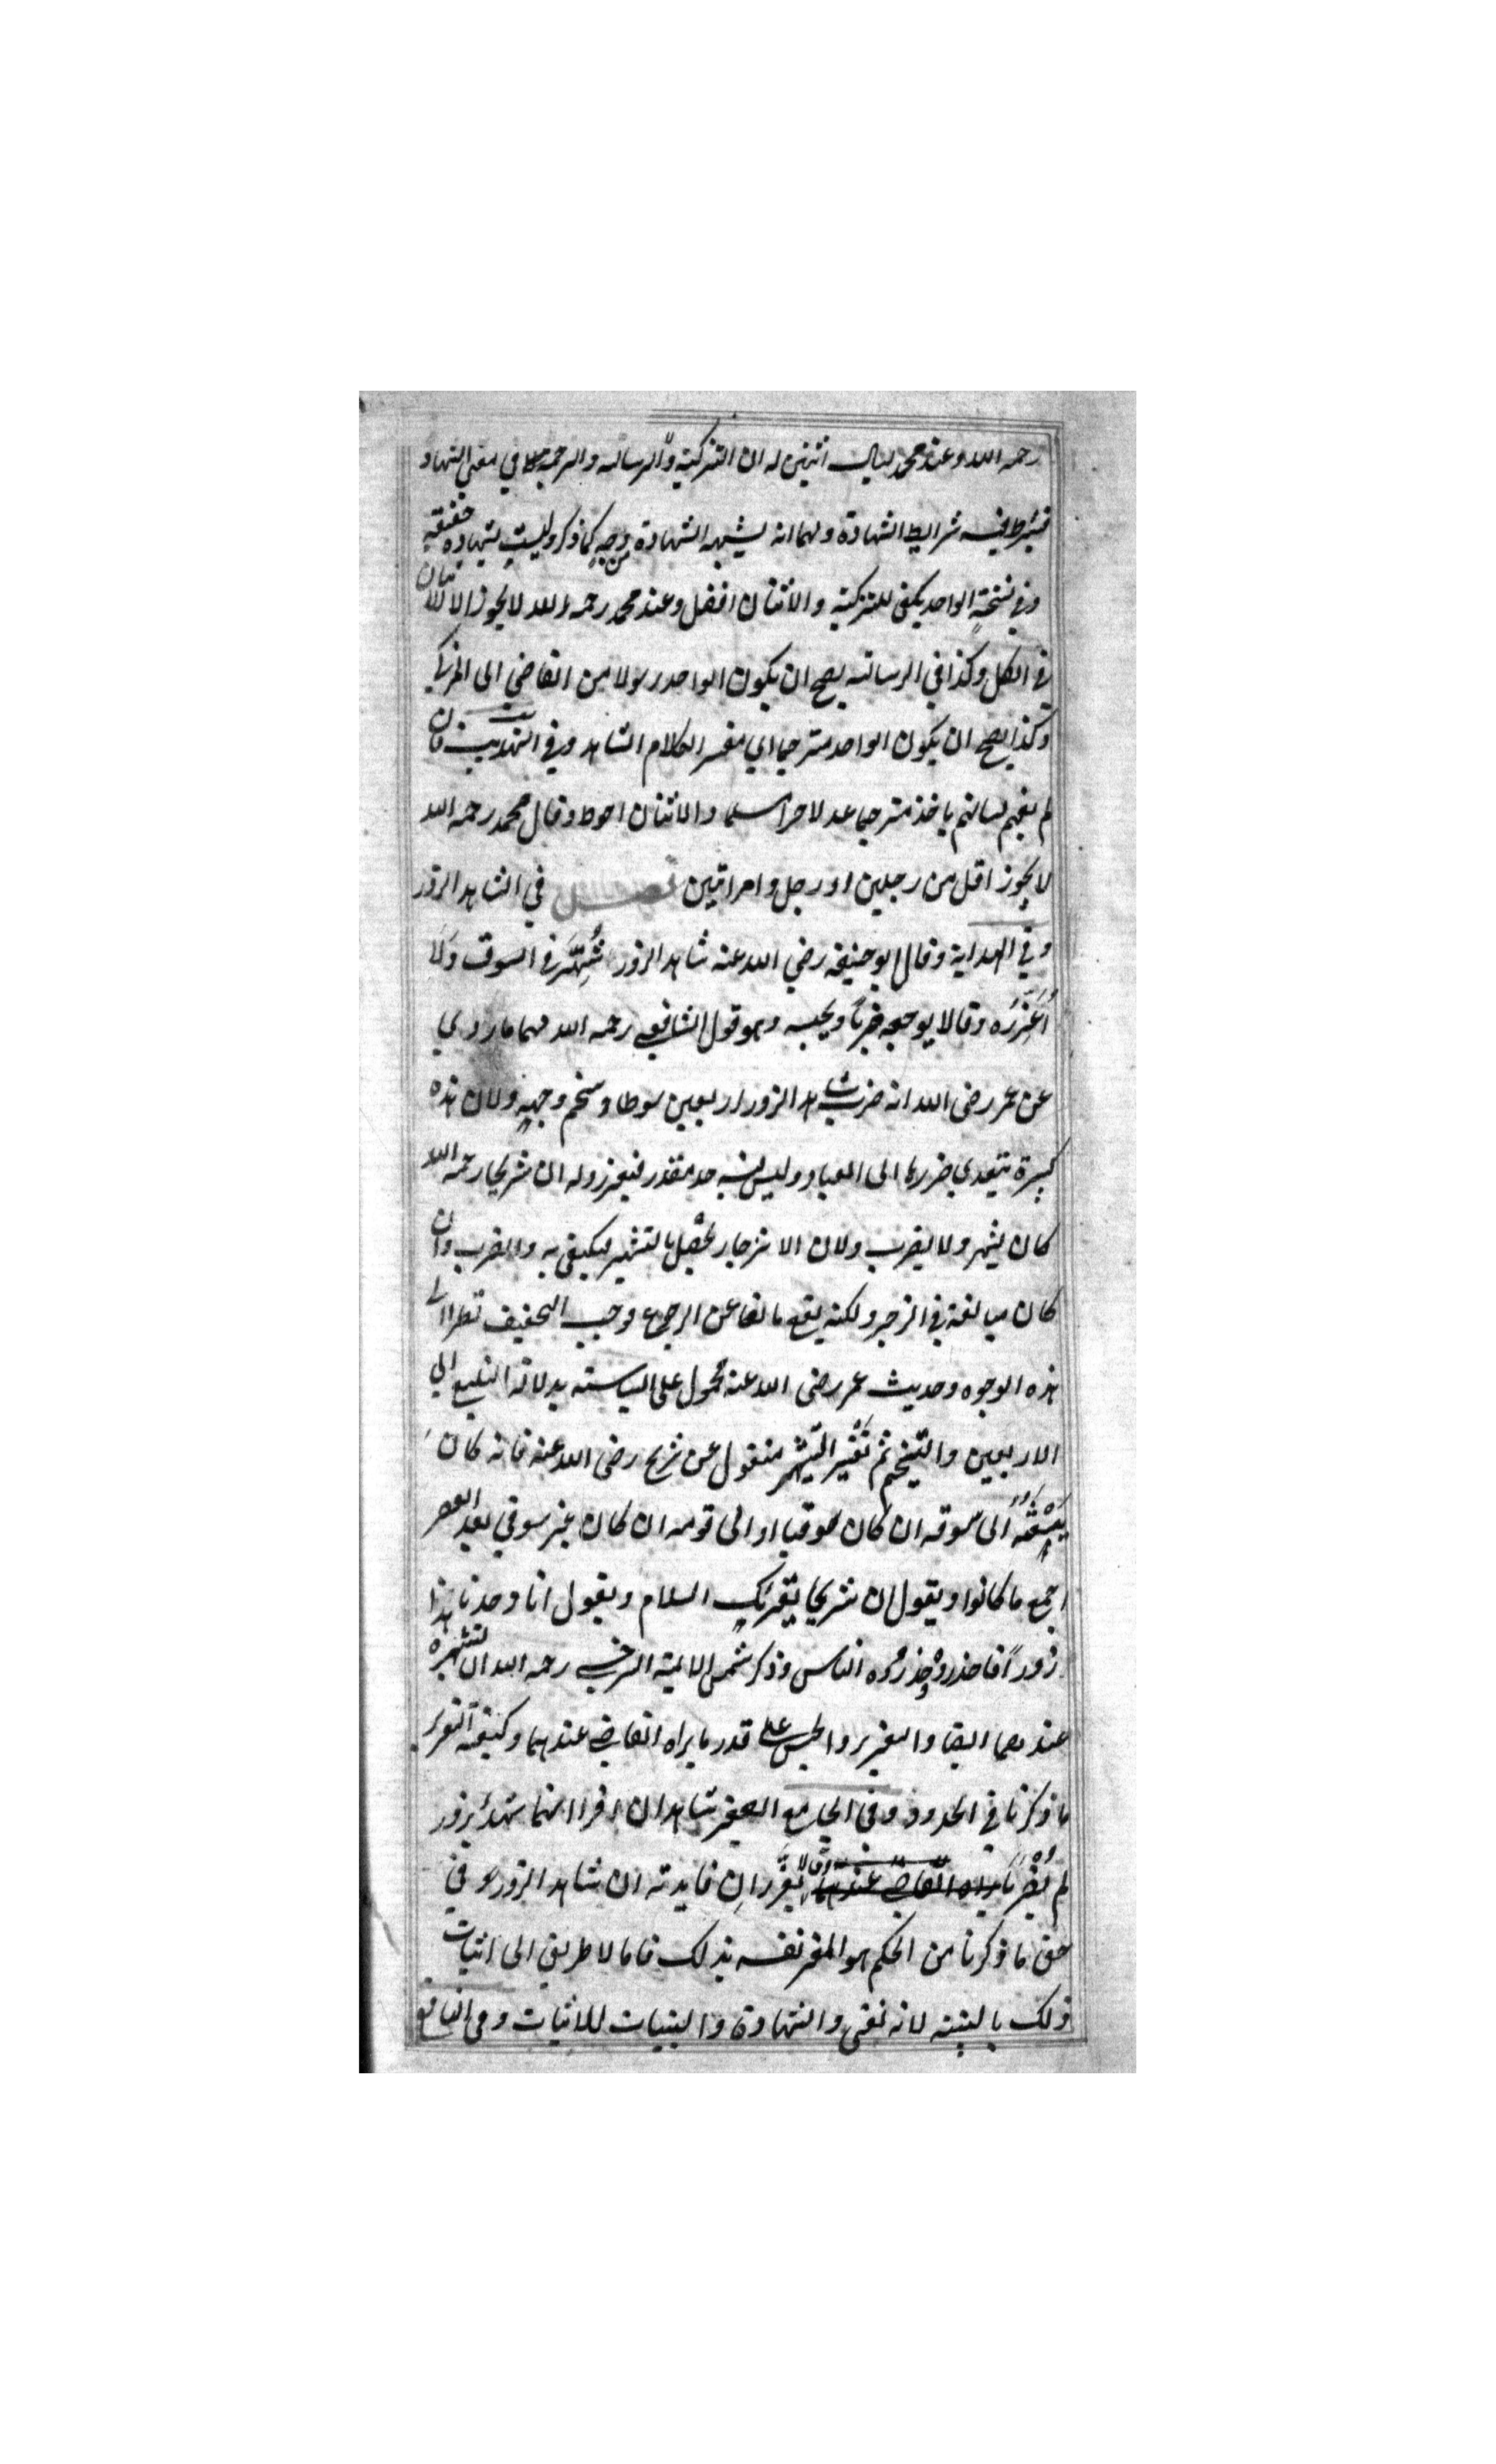 رحمه الله وعند محمد يسال اثنين له ان التزكية والرسالة والترجمة في معنى الشهادة
فيشترط فيه شرايط الشهادة ولهما انه يشبه الشهادة من وجه كما ذكر وليست بشهادة حقيقة
وفي نسخة الواحد يكفي للتزكية والاثنان افضل وعند محمد رحمه الله لا يجوز الا اثنان
في الكل وكذا في الرسالة يصح ان يكون الواحد رسولا من القاضي الى المزكي
وكذا يصح ان يكون الواحد مترجما اي مفسرا لكلام الشاهد وفي التهذيب فان
لم يفهم لسانهم ياخذ مترجما عدلا حرا مسلما والاثنان احوط وقال محمد رحمه الله
لا يجوز اقل من رجلين او رجل وامراتين فصل في الشاهد الزور
وفي الهداية وقال ابو حنيفة رضي الله عنه شاهد الزور اُشَهِّرُه في السوق ولا
اُعَزِّرُه وقالا يوجعه ضربا ويحبسه وهو قول الشافعي رحمه الله لهما ما روي
عن عمر رضي الله انه ضرب شاهد الزور اربعين سوطا وسخم وجهه ولان هذه
كبيرة يتعدي ضررها الى العباد وليس فيه حد مقدر فيعزر وله ان شريحا رحمه الله
كان يشهر ولا يضرب ولان الانزجار يحصل بالتشهير فيكتفي به والضرب وان
كان مبالغة في الزجر ولكنه يقع مانعا عن الرجوع فوجب التخفيف نظرا الى
هذه الوجوه وحديث عمر رضي الله عنه محمول على السياسة بدلالة التبليغ الى
الاربعين والتسخيم ثم تفسير التشهير منقول عن شريح رضي الله عنه فانه كان
يبعثه الى سوقه ان كان سوقيا او الى قومه ان كان غير سوقي بعد العصر
اجمع ما كانوا ويقول ان شريحا يقرئكم السلام ويقول انا وجدنا هذا
زورا فاحذروه وحذروه الناس وذكر شمس الايمة السرخسي رحمه الله ان تشهيره
عندهما ايضا والتعزير والحبس على قدر ما يراه القاضي عندهما وكيفية التعزير
ما ذكرنا في الحدود وفي الجامع الصغير شاهدان اقرا انهما شهدا بزور
لم يُضْرَبَا وقالا يعزران فايدته ان شاهد الزور في
حق ما ذكرنا من الحكم هو المقر على نفسه بذلك فاما لا طريق الى اثبات
ذلك بالبينة لانه نفي والشهادة والبينات للاثبات وفي الينابيع